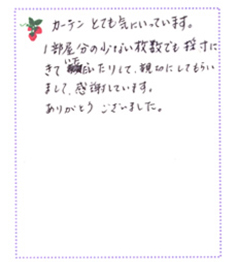 カーテン とても気にいっています。
1部屋分の少ない枚数でも採寸に
きていただいたりして、親切にしてもらい
まして、感謝しています。
ありがとう ございました。